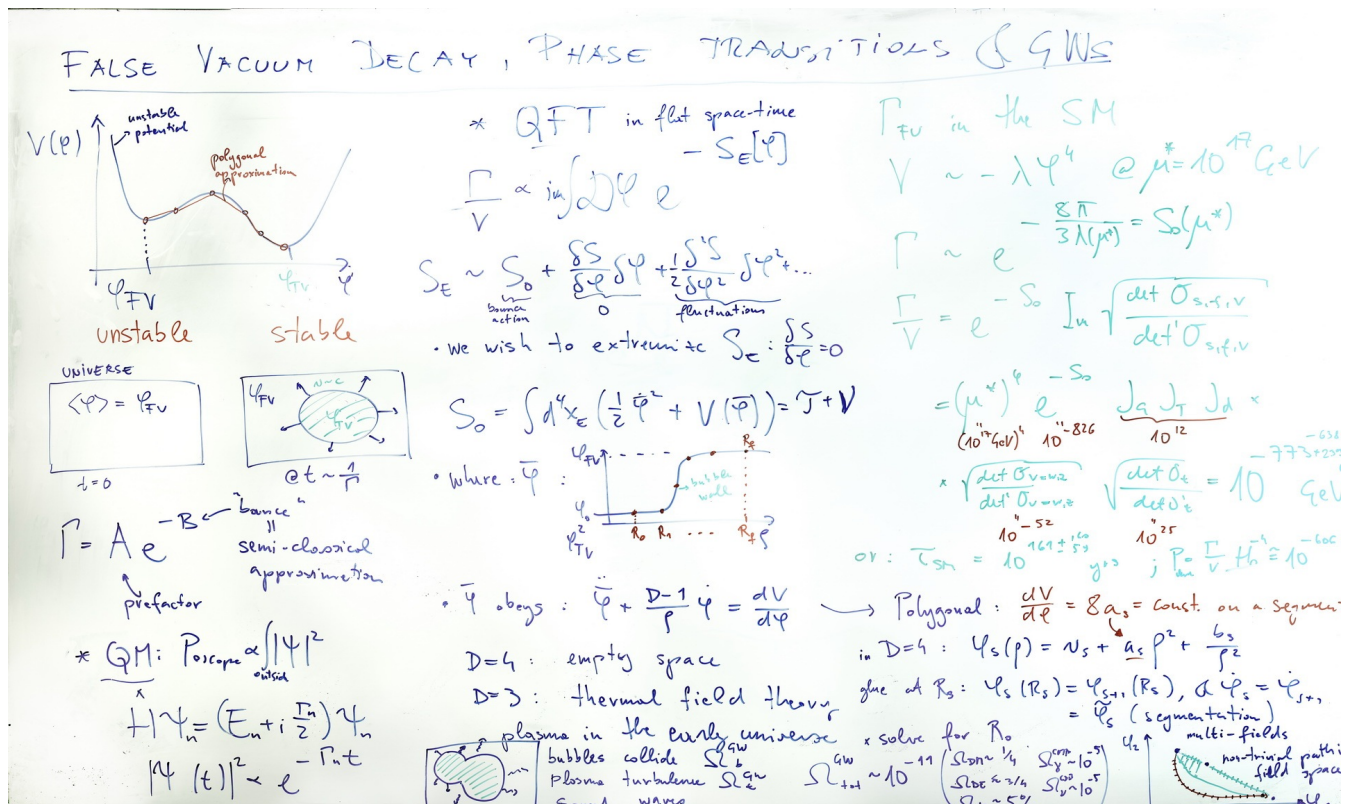 FALSE VACUUM DECAY, PHASE TRANSITIONS & GWs
V(φ)
unstable
potential
polygonal
approximation
φ_FV
φ_TV
φ
unstable
stable
UNIVERSE
⟨φ⟩ = φ_FV
t=0
φ_FV
v~c
φ_TV
@ t ~ 1/Γ
Γ = A e^-B
"bounce"
=
semi-classical
approximation
prefactor
* QM: P_escape ∝ ∫_outside |Ψ|²
HΨ_n = (E_n + i Γ_n/2) Ψ_n
|Ψ(t)|² ∝ e^-Γ_n t
* QFT in flat space-time
Γ/V ∝ im ∫ DΨ e^-S_E[φ]
S_E ~ S_0 + δS/δφ δφ + 1/2 δ²S/δφ² δφ² + ...
bounce
action
0
fluctuations
• we wish to extremize S_E : δS/δφ = 0
S_0 = ∫ d⁴x_E (1/2 φ̇² + V(φ̄)) = T + V
• where : φ̄ :
φ_FV
φ_0
φ_TV
bubble
wall
R_0 R_1 ... R_f ρ
• φ̄ obeys : φ̈ + D-1/ρ φ̇ = dV/dφ
D=4 : empty space
D=3 : thermal field theory
plasma in the early universe
bubbles collide Ω_b^GW
plasma turbulence Ω_t^GW
sound waves
Ω_tot^GW ~ 10^-11
Γ_FV in the SM
V ~ - λφ⁴ @ μ* = 10^17 GeV
Γ ~ e^-8π/3λ(μ*) = S_0(μ*)
Γ/V = e^-S_0 Im √(det O_s,f,v / det' O_s,f,v)
= (μ*)⁴ e^-S_0 J_G J_T J_d ×
(10^17 GeV)⁴ 10^-826 10^12
10^-52
10^25
; P
→ Polygonal : dV/dφ = 8a_s = const. on a segmen
in D=4 : φ_s(ρ) = v_s + a_s ρ² + b_s/ρ²
glue at R_s : φ_s(R_s) = φ_s+1(R_s), & φ̇_s = φ̇_s+1
= φ̃_s (segmentation)
* solve for R_0
φ_2
multi-fields
non-trivial path i
field space